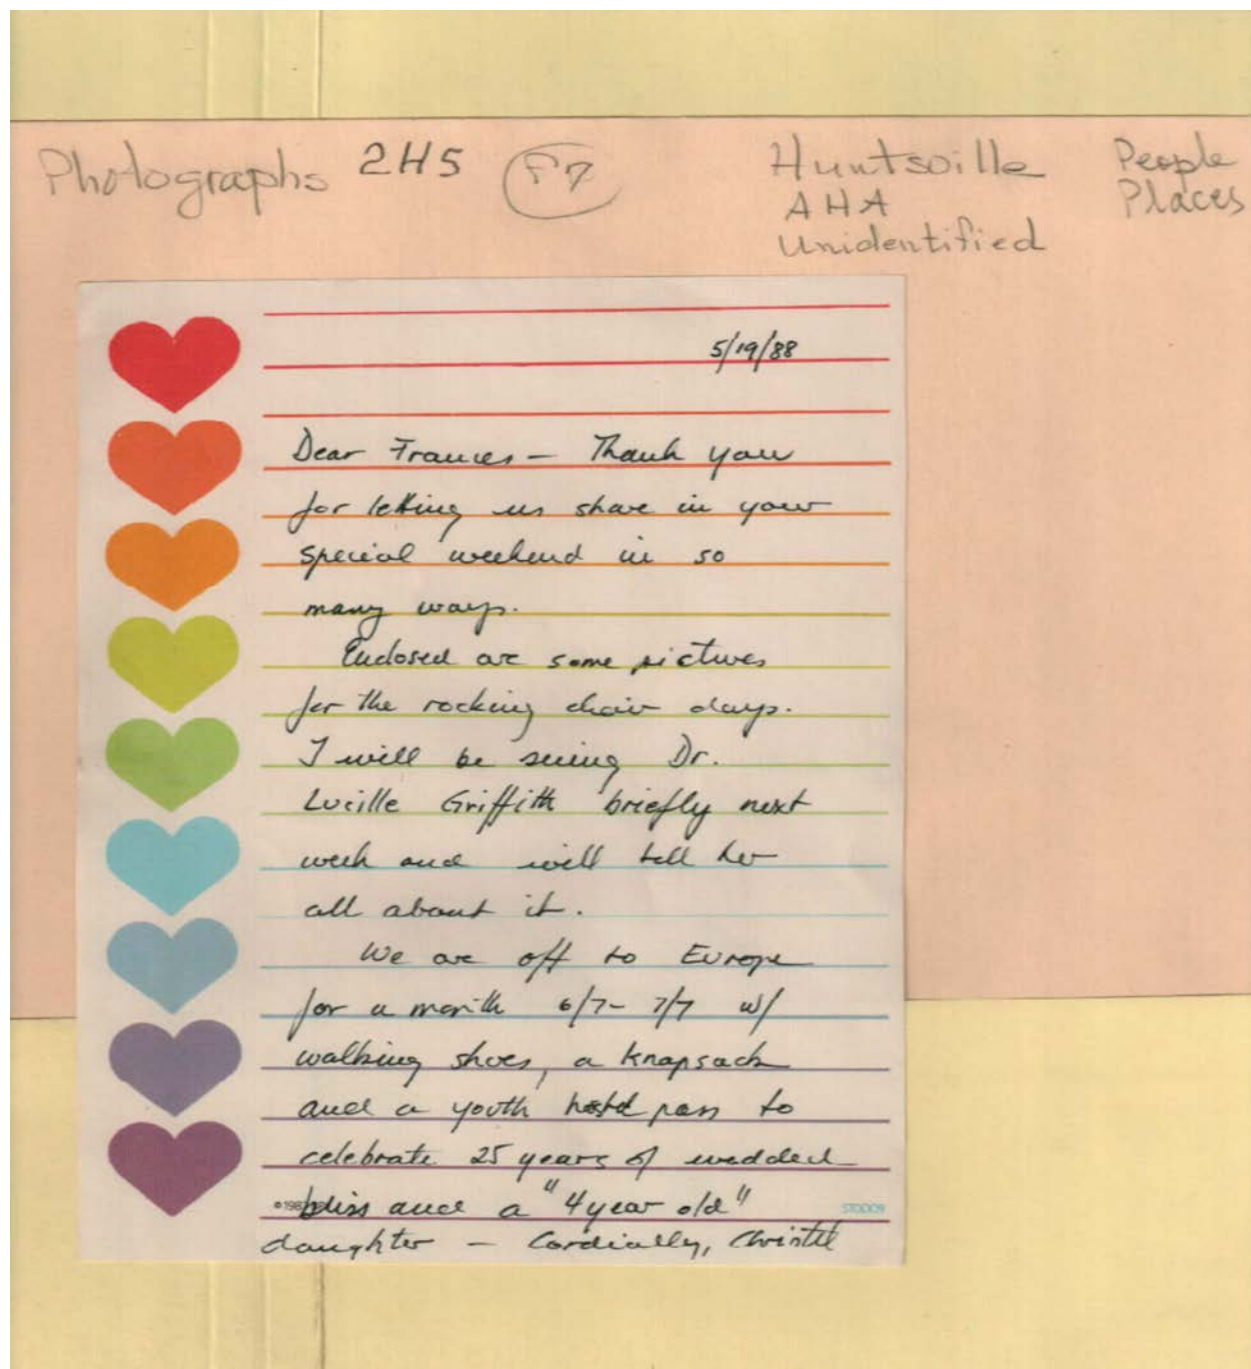 Photographs 2H5 F7 Huntsville People
AHA Places
Unidentified
5/19/88
Dear Frances – Thank you
for letting us share in your
special weekend in so
many ways.
Enclosed are some pictures
for the rocking chair days.
I will be seeing Dr.
Lucille Griffith briefly next
week and will tell her
all about it.
We are off to Europe
for a month 6/7 – 7/7 w/
walking shoes, a knapsack
and a youth hostel pass to
celebrate 25 years of wedded
bliss and a "4 year old"
daughter – Cordially, Christel